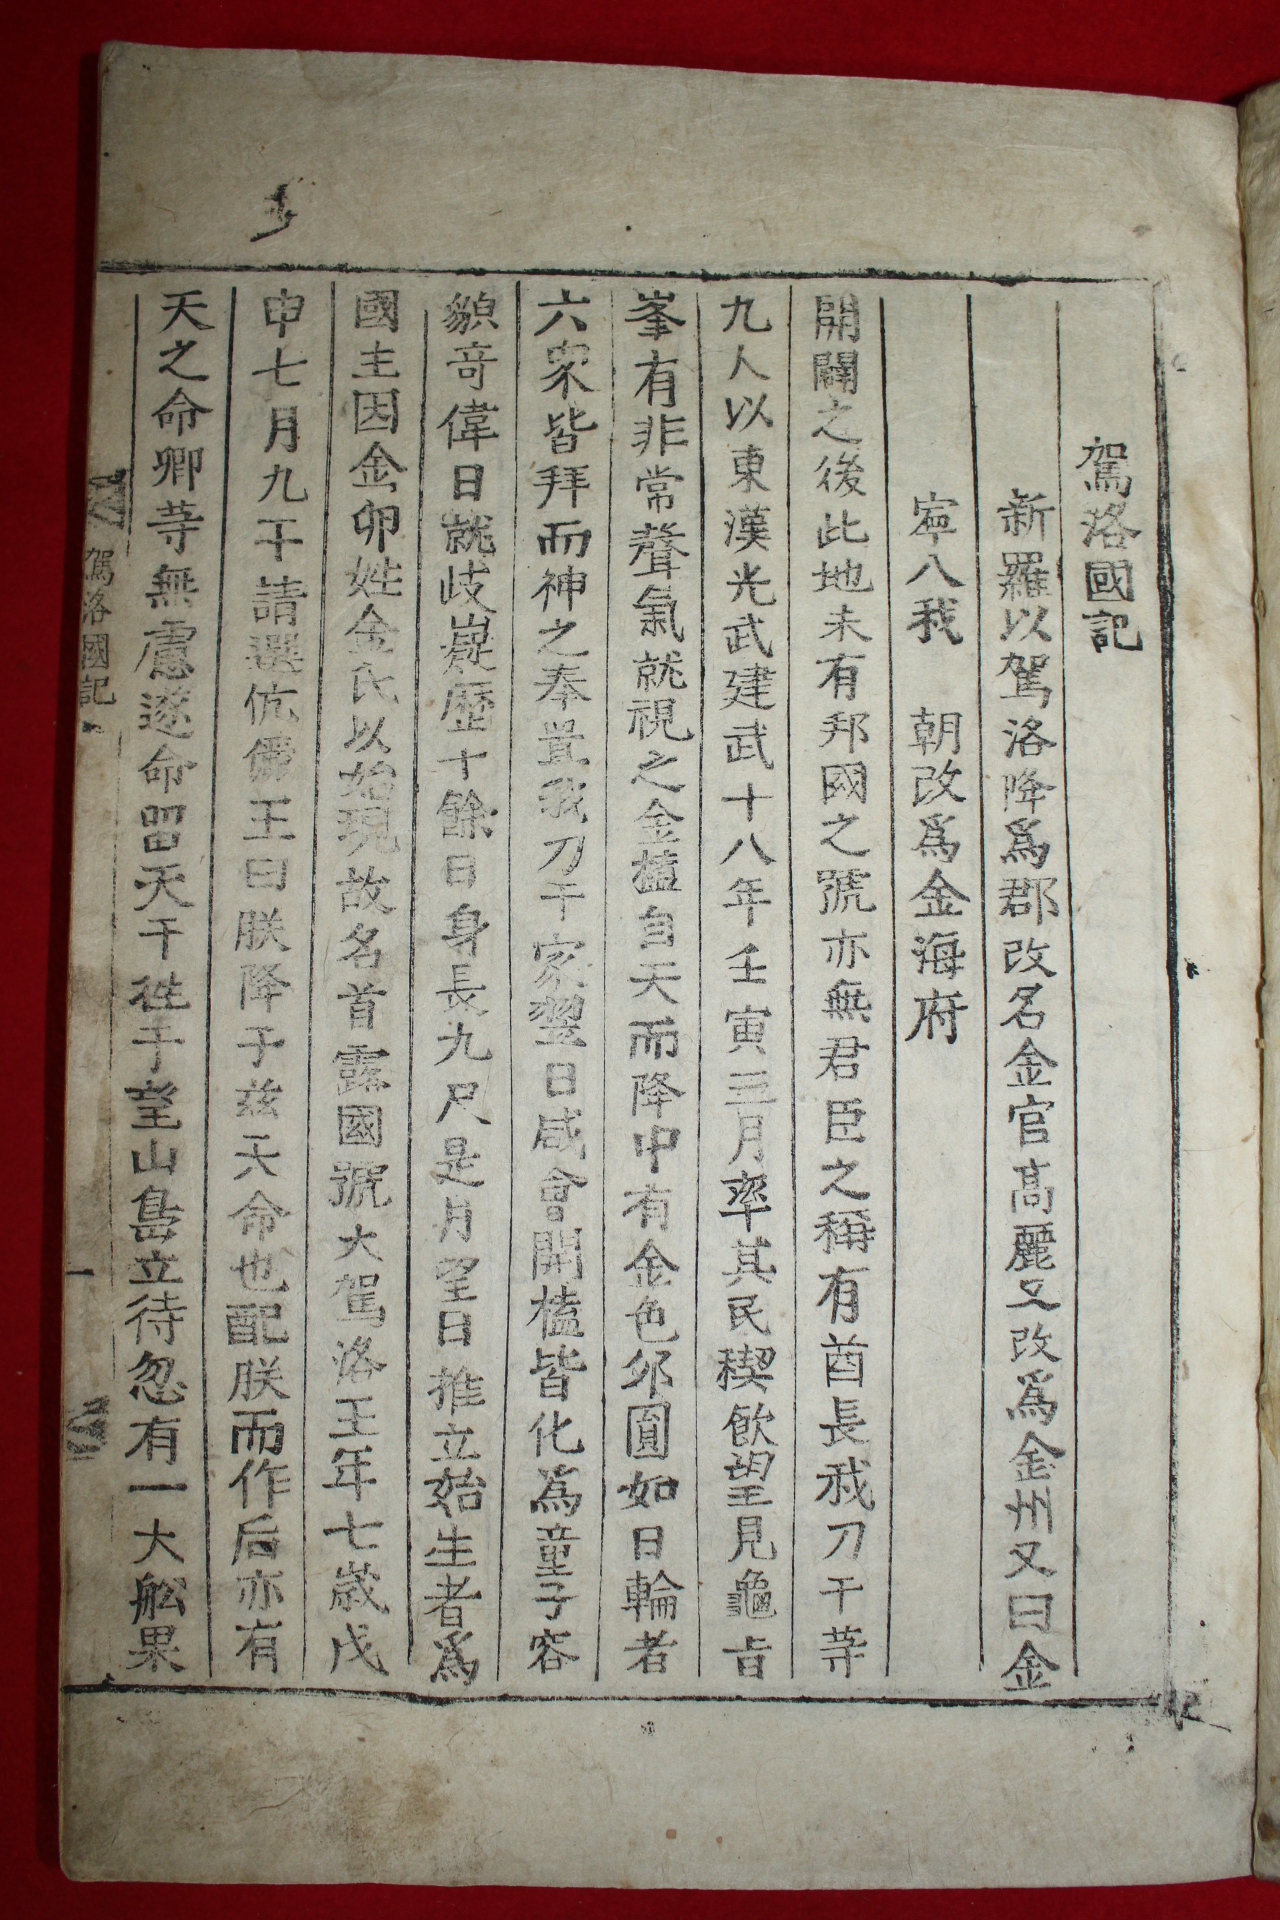 駕洛國記
新羅以駕洛降爲郡改名金官高麗又改爲金州又曰金
寧入我 朝改爲金海府
開闢之後此地未有邦國之號亦無君臣之稱有酋長我刀干等
九人以東漢光武建武十八年壬寅三月率其民禊飮望見龜旨
峯有非常聲氣就視之金榼自天而降中有金色卵圓如日輪者
六衆皆拜而神之奉置我刀干家翌日咸會開榼皆化爲童子容
貌奇偉日就岐嶷歷十餘日身長九尺是月望日推立始生者爲
國主因金卵姓金氏以始現故名首露國號大駕洛王年七歲戊
申七月九干請選伉儷王曰朕降于玆天命也配朕而作后亦有
天之命卿等無慮遂命留天干徃于望山島立待忽有一大舩果
駕洛國記
一